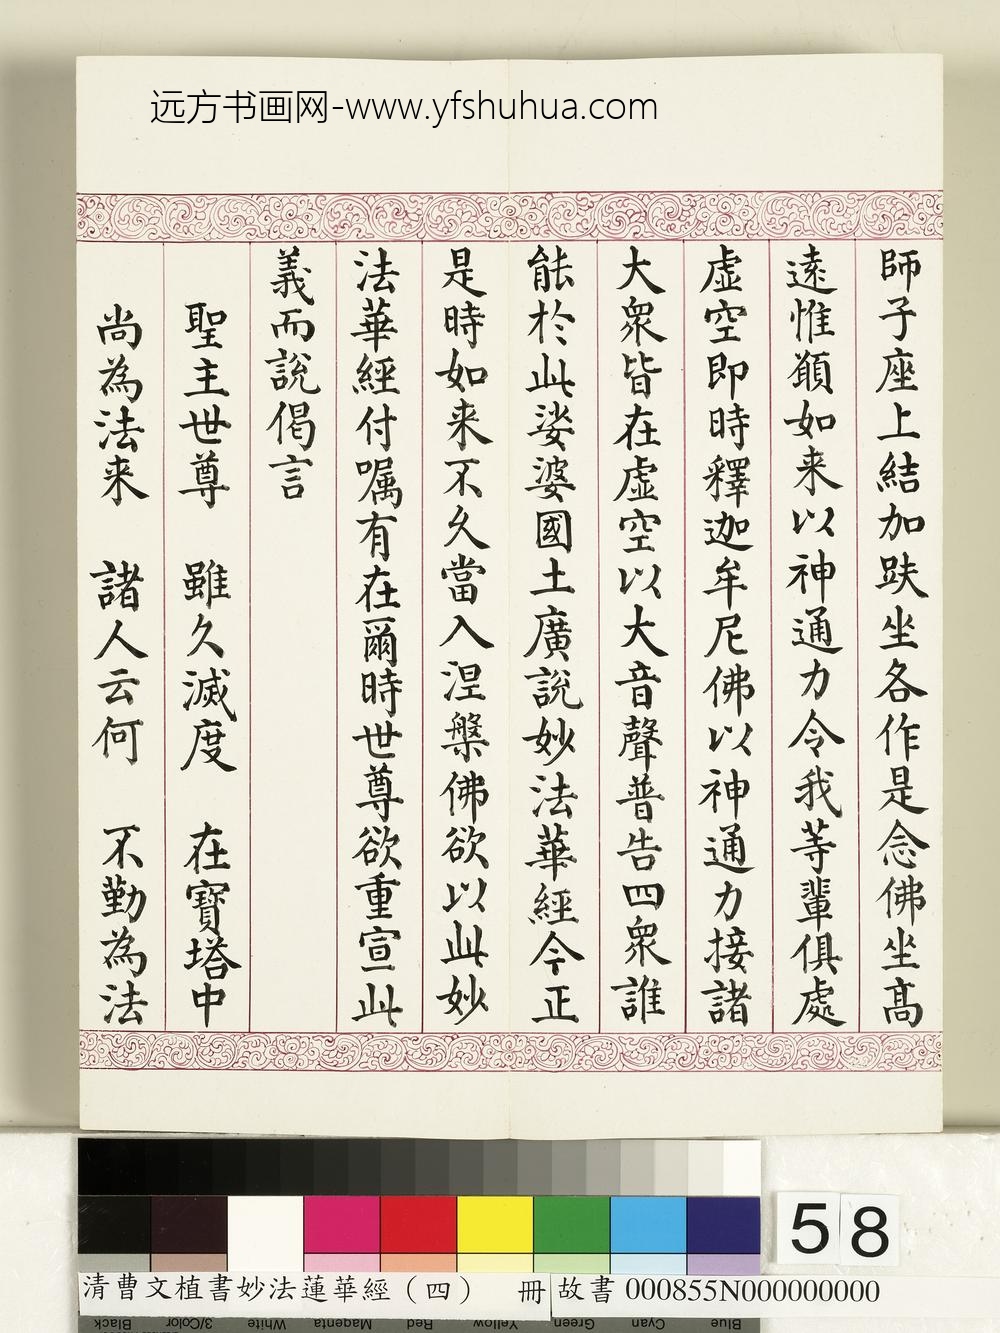 远方书画网-www.yfshuhua.com
師子座上結加趺坐各作是念佛坐高
遠惟願如来以神通力令我等輩俱處
虛空即時釋迦牟尼佛以神通力接諸
大眾皆在虛空以大音聲普告四眾誰
能於此娑婆國土廣說妙法華經今正
是時如来不久當入涅槃佛欲以此妙
法華經付囑有在爾時世尊欲重宣此
義而說偈言
聖主世尊　雖久滅度　在寶塔中
尚為法来　諸人云何　不勤為法
58
清曹文植書妙法蓮華經（四）　冊 故書 000855N000000000
Black 3/Color White Magenta Red Yellow Green Cyan Blue